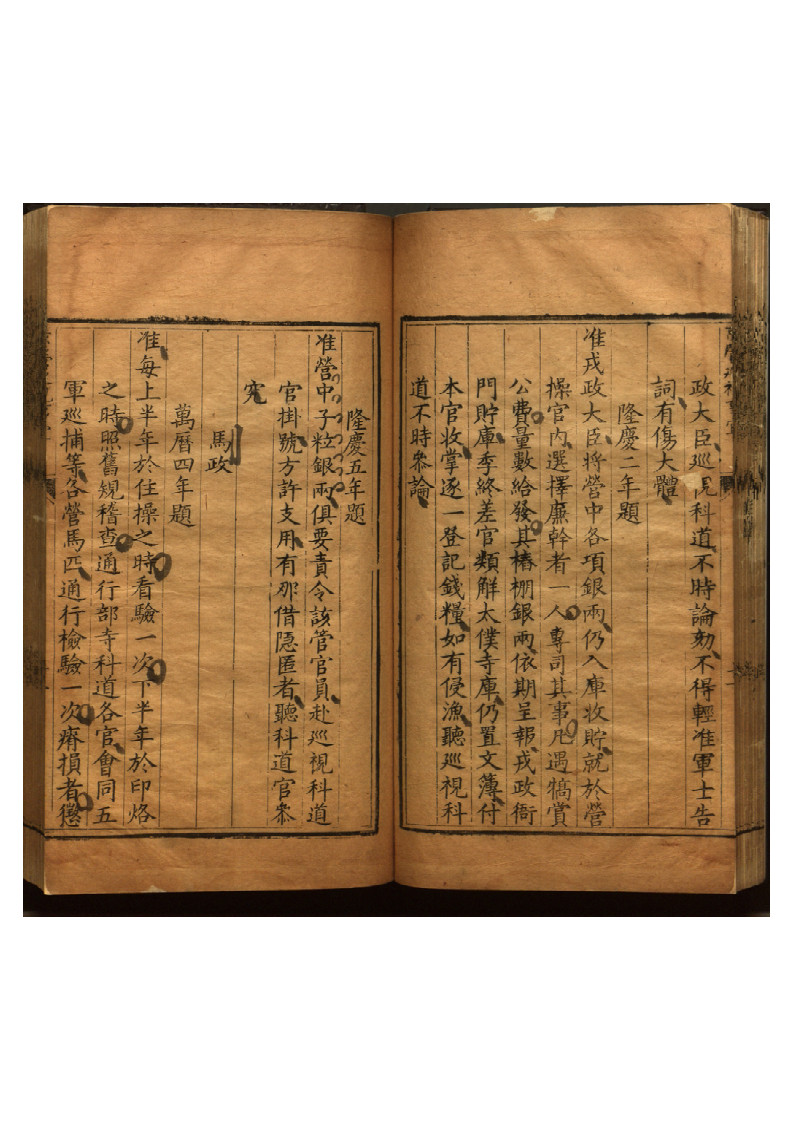 政大臣巡視科道不時論劾不得輕准軍士告
詞有傷大體
隆慶二年題
准戎政大臣將營中各項銀兩仍入庫收貯就於營
操官內選擇廉幹者一人專司其事凡遇犒賞
公費量數給發其樁棚銀兩依期呈報戎政衙
門貯庫季終差官類解太僕寺庫仍置文簿付
本官收掌逐一登記錢糧如有侵漁聽巡視科
道不時叅論
隆慶五年題
准營中子粒銀兩俱要責令該管官員赴巡視科道
官掛號方許支用有那借隐匿者聽科道官叅
究
馬政
萬曆四年題
准每上半年於住操之時看驗一次下半年於印烙
之時照舊規稽查通行部寺科道各官會同五
軍巡捕等各營馬匹通行檢驗一次瘠損者懲